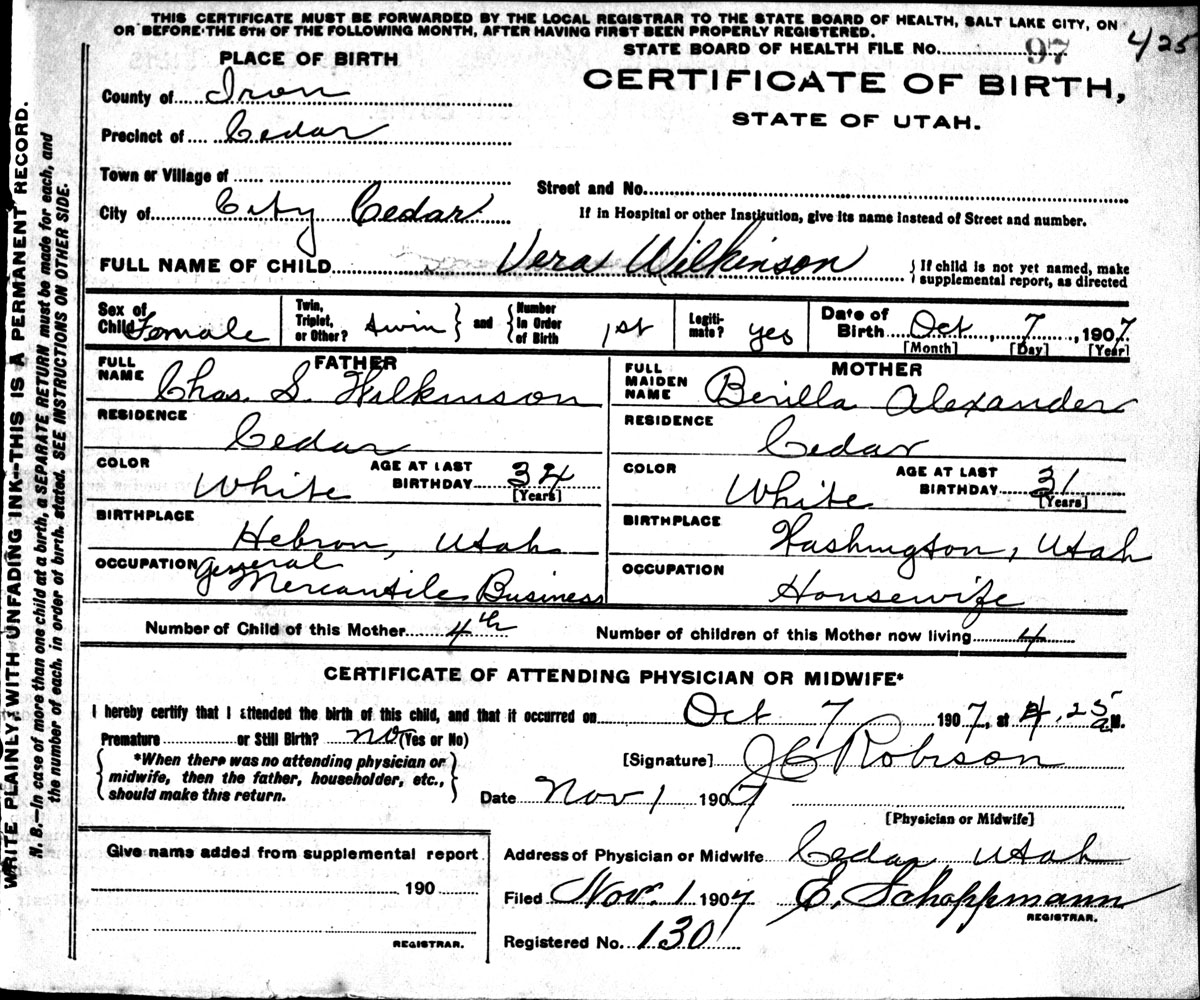 THIS CERTIFICATE MUST BE FORWARDED BY THE LOCAL REGISTRAR TO THE STATE BOARD OF HEALTH, SALT LAKE CITY, ON
OR BEFORE THE 5TH OF THE FOLLOWING MONTH, AFTER HAVING FIRST BEEN PROPERLY REGISTERED.
425
STATE BOARD OF HEALTH FILE No. 97
PLACE OF BIRTH
CERTIFICATE OF BIRTH,
STATE OF UTAH.
County of Iron
Precinct of Cedar
Town or Village of
Street and No.
City of City Cedar
If in Hospital or other Institution, give its name instead of Street and number.
FULL NAME OF CHILD Vera Wilkinson
{ If child is not yet named, make
supplemental report, as directed
Sex of
Child Female
Twin,
Triplet,
or Other? twin } and { Number
in Order
of Birth 1st
Legiti-
mate? yes
Date of
Birth Oct, 7, 1907
[Month] [Day] [Year]
FATHER
FULL
NAME Chas. S. Wilkinson
RESIDENCE
Cedar
COLOR White
AGE AT LAST
BIRTHDAY 34
[Years]
BIRTHPLACE
Hebron, Utah
OCCUPATION General
Mercantile Business
MOTHER
FULL
MAIDEN
NAME Berilla Alexander
RESIDENCE
Cedar
COLOR White
AGE AT LAST
BIRTHDAY 31
[Years]
BIRTHPLACE
Washington, Utah
OCCUPATION
Housewife
Number of Child of this Mother 4th
Number of children of this Mother now living 4
CERTIFICATE OF ATTENDING PHYSICIAN OR MIDWIFE*
I hereby certify that I attended the birth of this child, and that it occurred on Oct 7 1907, at 4.25 a M.
Premature or Still Birth? no (Yes or No)
{ *When there was no attending physician or
midwife, then the father, householder, etc.,
should make this return. }
[Signature] J C Robison
Date Nov 1 1907
[Physician or Midwife]
Give name added from supplemental report
190
REGISTRAR.
Address of Physician or Midwife Cedar, Utah
Filed Nov. 1 1907 E. Schoppmann
REGISTRAR.
Registered No. 130
WRITE PLAINLY, WITH UNFADING INK--THIS IS A PERMANENT RECORD.
N. B.—In case of more than one child at a birth, a SEPARATE RETURN must be made for each, and
the number of each, in order of birth, stated. SEE INSTRUCTIONS ON OTHER SIDE.